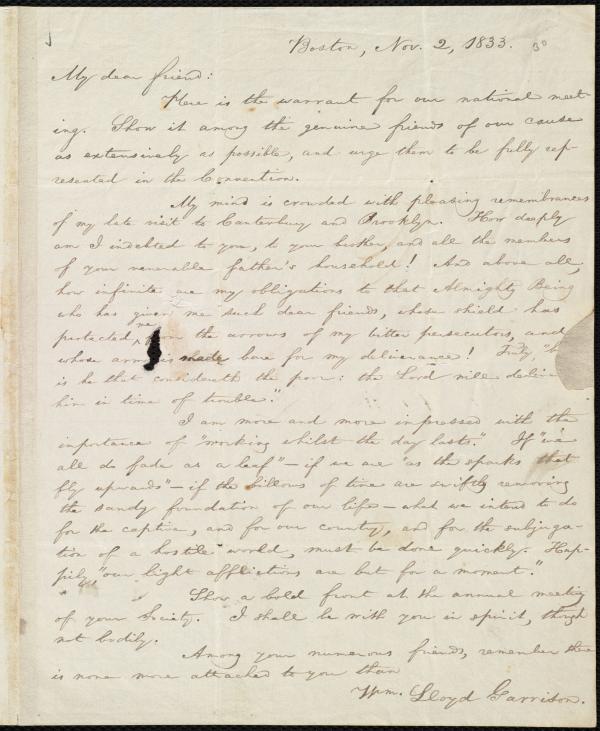 Boston, Nov. 2, 1833.
My dear friend:
Here is the warrant for our national meet-
ing. Show it among the genuine friends of our cause
as extensively as possible, and urge them to be fully rep-
resented in the Convention.
My mind is crowded with pleasing remembrances
of my late visit to Canterbury and Brooklyn. How deeply
am I indebted to you, to your brother, and all the members
of your venerable father's household! And above all,
how infinite are my obligations to that Almighty Being
who has given me such dear friends, whose shield has
me
protected ^ from the arrows of my bitter persecutors, and
whose arm is made bare for my deliverance! Truly, "b
is he that considereth the poor: the Lord will delive
him in time of trouble."
I am more and more impressed with the
importance of "working whilst the day lasts." If "we
all do fade as a leaf" — if we are "as the sparks that
fly upwards" — if the billows of time are swiftly removing
the sandy foundation of our life — what we intend to do
for the captive, and for our country, and for the subjuga-
tion of a hostile world, must be done quickly. Hap-
pily, "our light afflictions are but for a moment."
Show a bold front at the annual meeting
of your Society. I shall be with you in spirit, though
not bodily.
Among your numerous friends, remember there
is none more attached to you than
Wm. Lloyd Garrison.